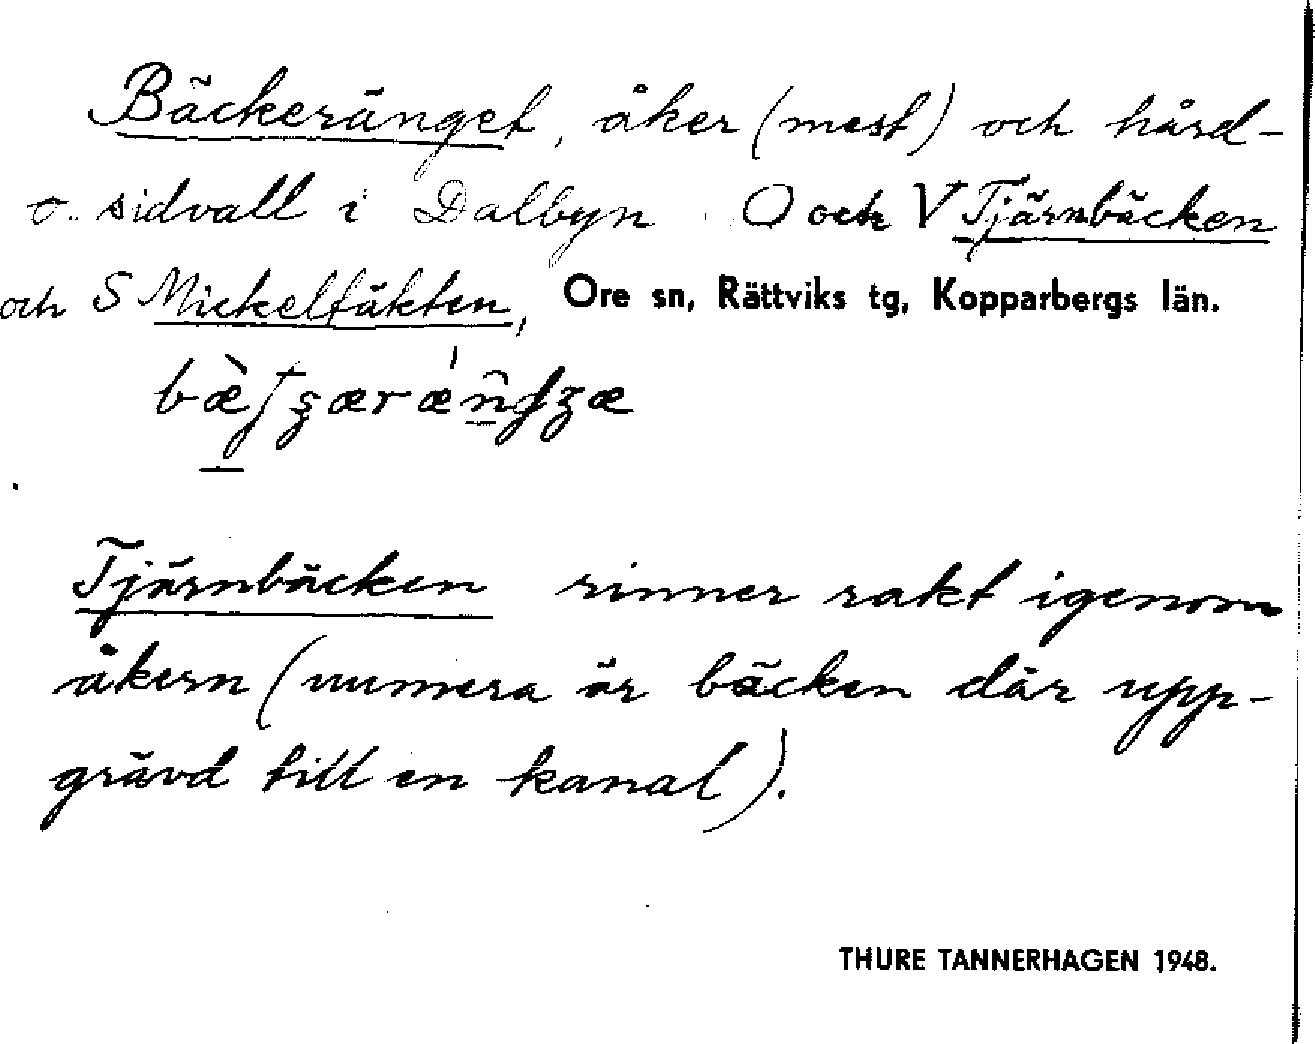 Bäckeränget, åker (mest) och hård-
o. sidvall i Dalbyn O och V Tjärnbäcken
och S Mickeltäkten, Ore sn, Rättviks tg, Kopparbergs län.
Tjärnbäcken rinner rakt igenom
åkern (numera är bäcken där upp-
grävd till en kanal).
THURE TANNERHAGEN 1948.